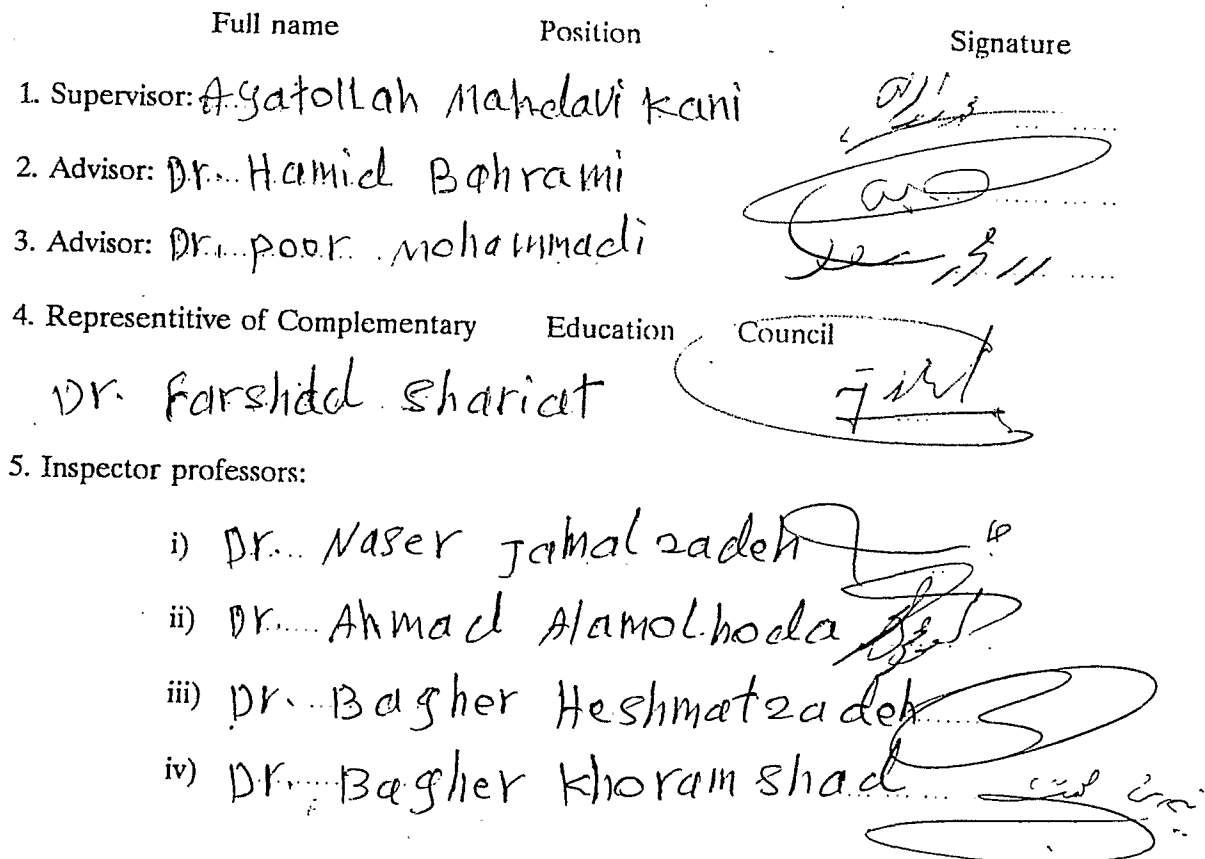 Full name Position Signature
1. Supervisor: Ayatollah Mahdavi Kani
2. Advisor: Dr. Hamid Bahrami
3. Advisor: Dr. poor Mohammadi
4. Representitive of Complementary Education Council
Dr. Farshad Shariat
5. Inspector professors:
i) Dr. Naser Jamalzadeh
ii) Dr. Ahmad Alamolhoda
iii) Dr. Bagher Heshmatzadeh
iv) Dr. Bagher Khoramshad